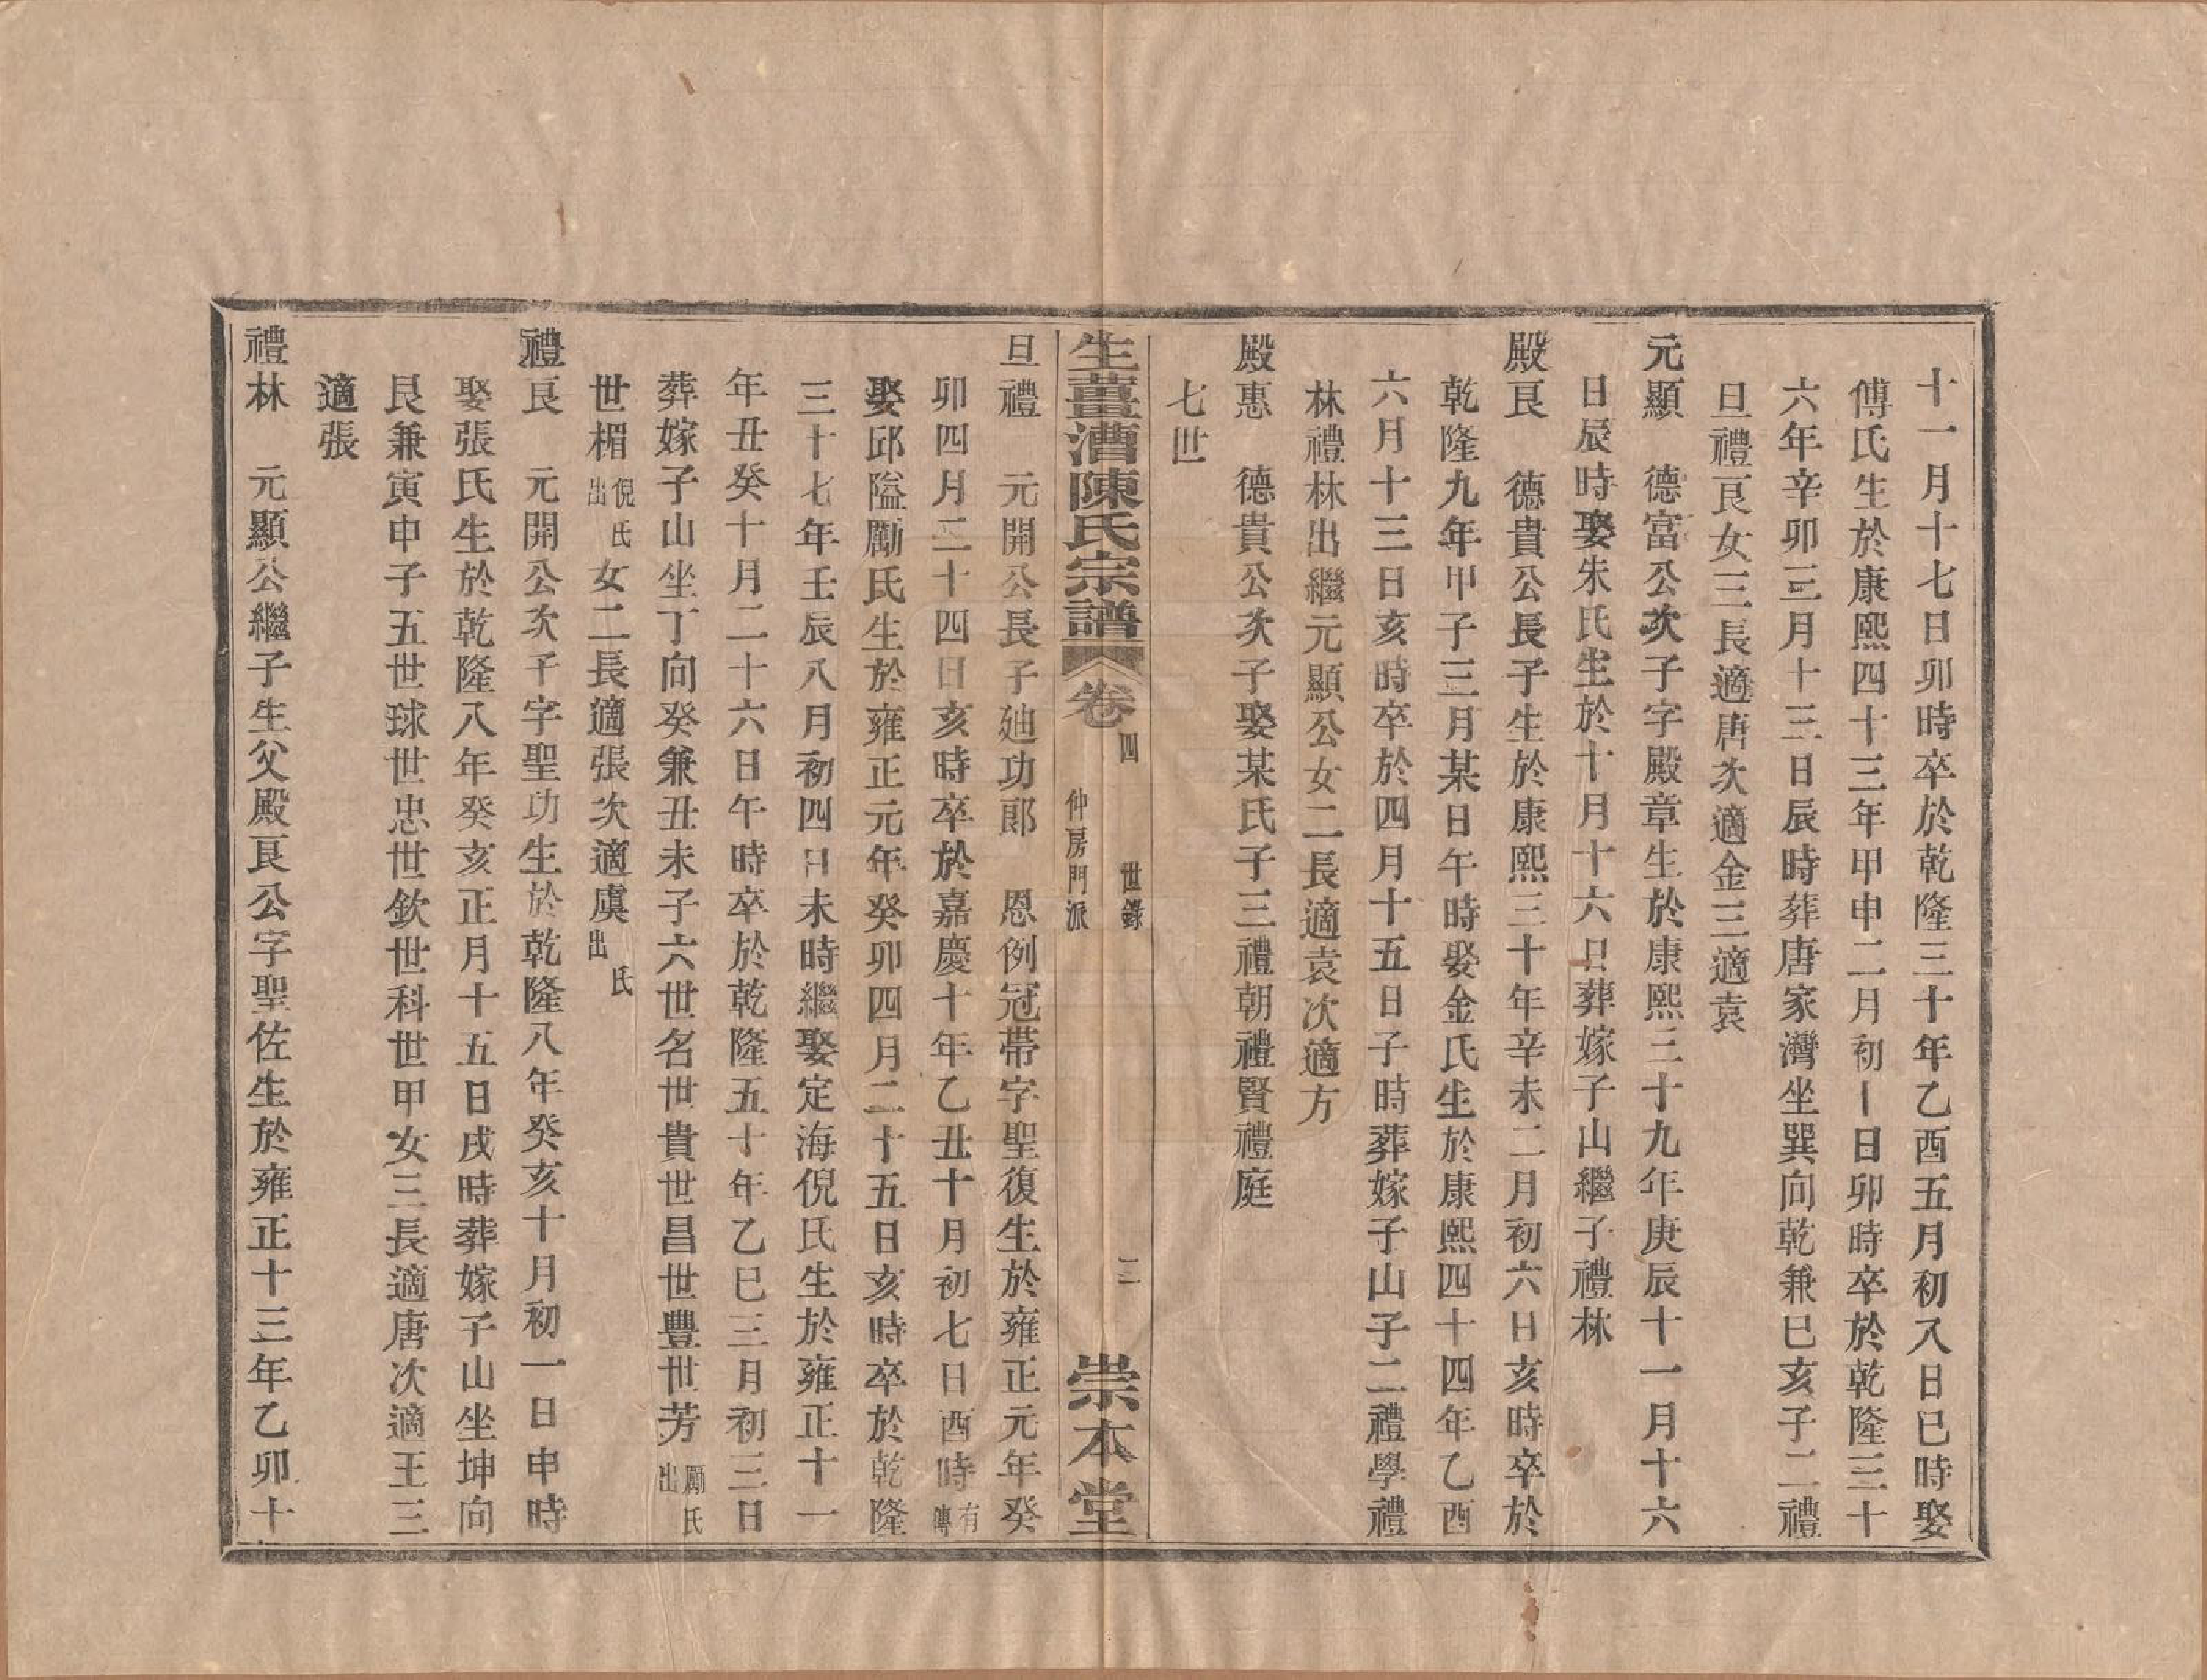 十一月十七日卯時卒於乾隆三十年乙酉五月初入日巳時娶
傅氏生於康熙四十三年甲申二月初一日卯時卒於乾隆三十
六年辛卯三月十三日辰時葬唐家灣坐巽向乾兼巳亥子二禮
旦禮艮女三長適唐次適金三適袁
元顯　德富公次子字殿章生於康熙三十九年庚辰十一月十六
日辰時娶朱氏生於十月十六日葬嫁子山繼子禮林
殿艮　德貴公長子生於康熙三十年辛未二月初六日亥時卒於
乾隆九年甲子三月某日午時娶金氏生於康熙四十四年乙酉
六月十三日亥時卒於四月十五日子時葬嫁子山子二禮學禮
林禮林出繼元顯公女二長適袁次適方
殿惠　德貴公次子娶某氏子三禮朝禮賢禮庭
七世
生薑漕陳氏宗譜　卷四　世錄　仲房門派　二　崇本堂
旦禮　元開公長子廸功郎　恩例冠帶字聖復生於雍正元年癸
卯四月二十四日亥時卒於嘉慶十年乙丑十月初七日酉時有傳
娶邱隘勵氏生於雍正元年癸卯四月二十五日亥時卒於乾隆
三十七年壬辰八月初四日未時繼娶定海倪氏生於雍正十一
年丑癸十月二十六日午時卒於乾隆五十年乙巳三月初三日
葬嫁子山坐丁向癸兼丑未子六世名世貴世昌世豊世芳勵氏出
世楣倪氏出女二長適張次適虞氏出
禮艮　元開公次子字聖功生於乾隆八年癸亥十月初一日申時
娶張氏生於乾隆八年癸亥正月十五日戌時葬嫁子山坐坤向
艮兼寅申子五世球世忠世欽世科世甲女三長適唐次適王三
適張
禮林　元顯公繼子生父殿艮公字聖佐生於雍正十三年乙卯十